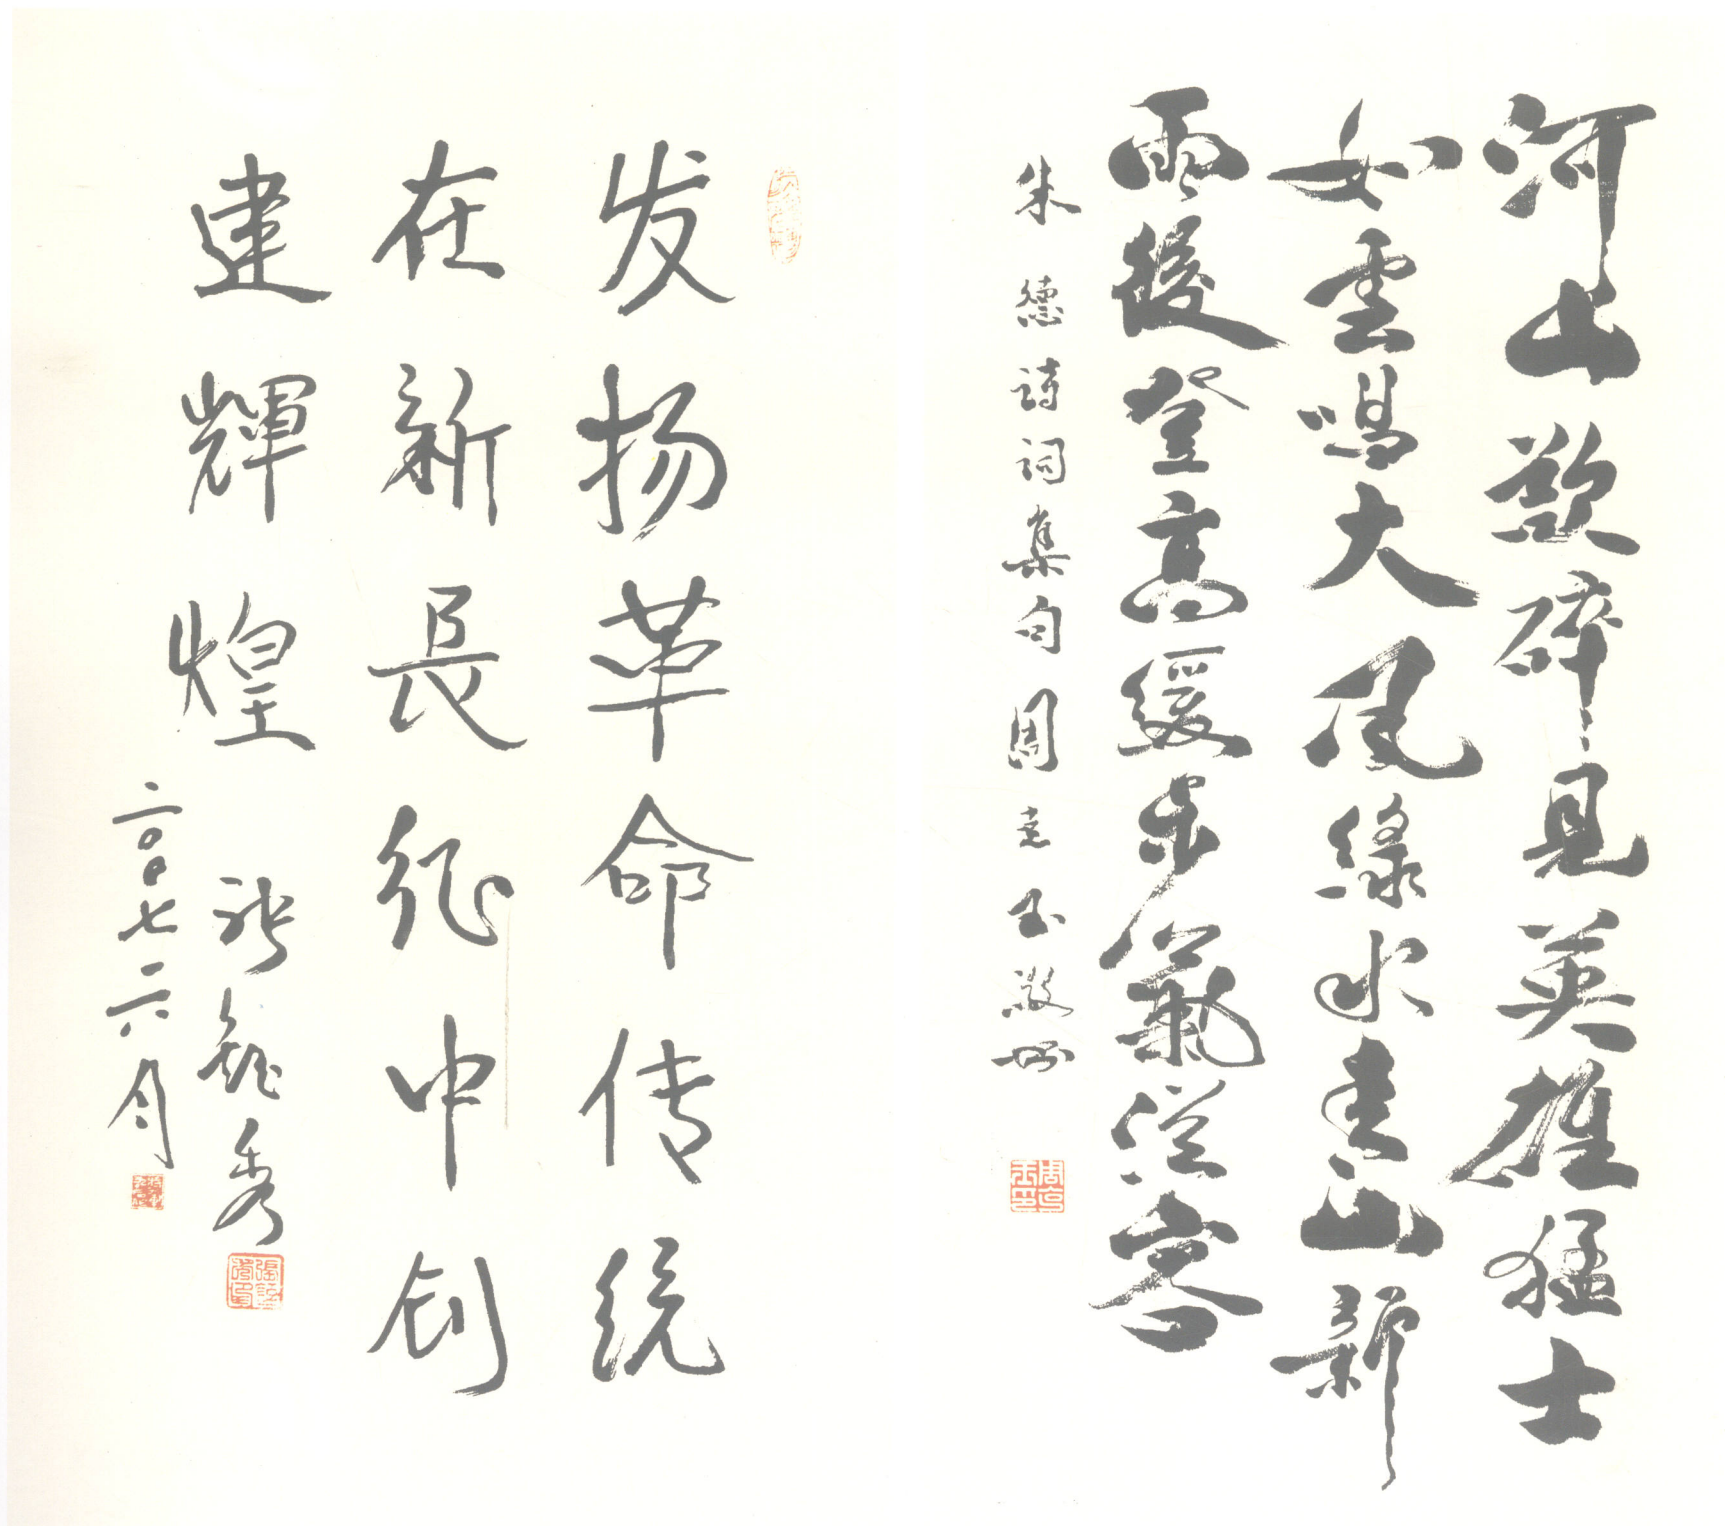 河山欲碎見英雄猛士
如雲唱大风綠水青山新
雨後登高緩步氣從容
朱德詩詞集句周克玉敬书
发扬革命传统
在新長征中创
建輝煌
张铚秀
二〇〇七年六月
周克玉印